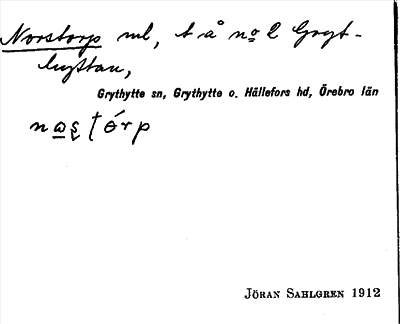 Norstorp ml, t å no 2 Gryt-
hyttan,
Grythytte sn, Grythytte o. Hällefors hd, Örebro län
JÖRAN SAHLGREN 1912